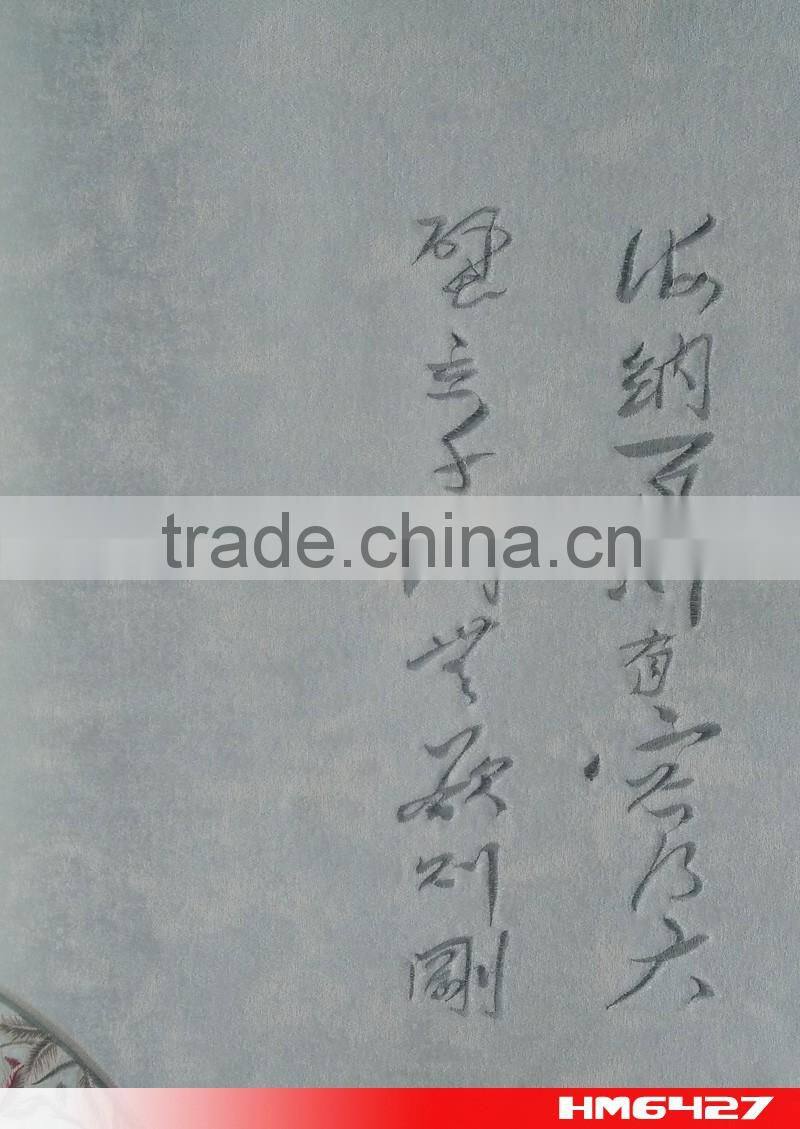 海納百川有容乃大
壁立千無欲則剛
trade.china.cn
HM6427